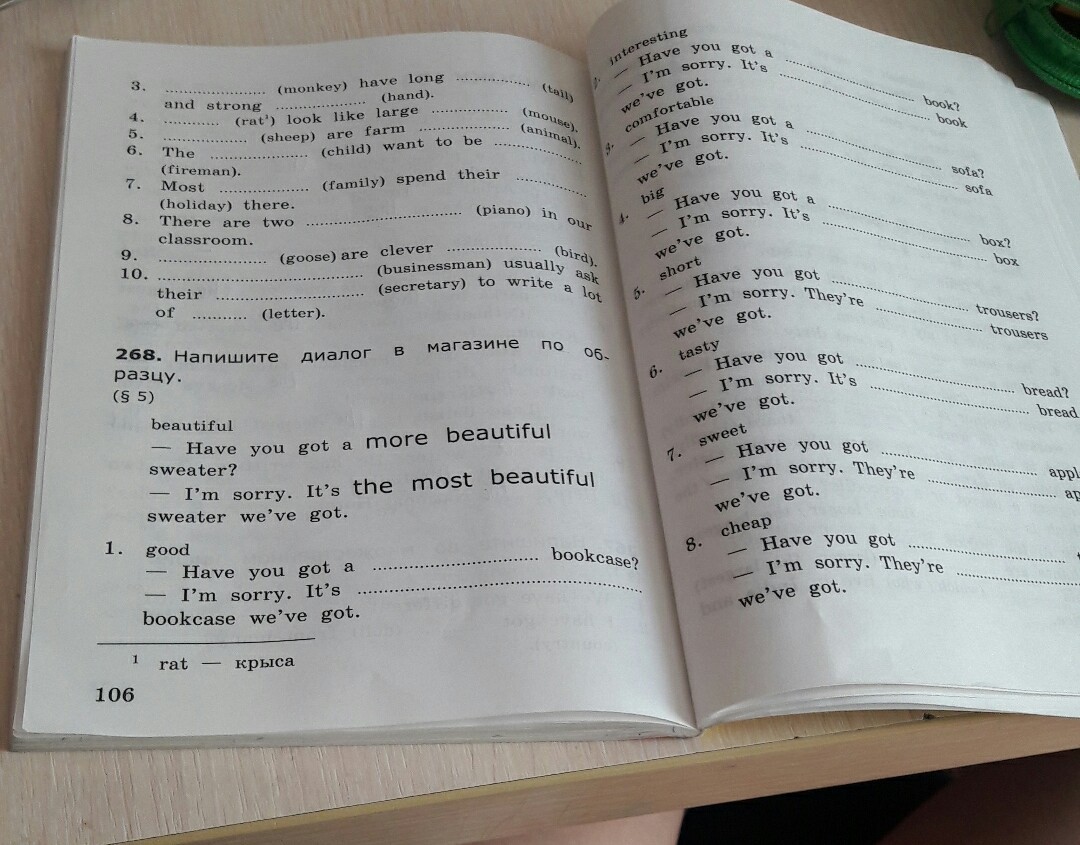 3. .................... (monkey) have long ............... (tail)
and strong .................. (hand).
4. ............ (rat¹) look like large ............... (mouse).
5. ................. (sheep) are farm .................. (animal).
6. The .................... (child) want to be ..................
(fireman).
7. Most .................. (family) spend their ...............
(holiday) there.
8. There are two ............................... (piano) in our
classroom.
9. ...................... (goose) are clever ................... (bird).
10. ......................................... (businessman) usually ask
their .............................. (secretary) to write a lot
of ........... (letter).
268. Напишите диалог в магазине по об-
разцу.
(§ 5)
beautiful
— Have you got a more beautiful
sweater?
— I'm sorry. It's the most beautiful
sweater we've got.
1. good
— Have you got a .................................. bookcase?
— I'm sorry. It's ..........................................................
bookcase we've got.
¹ rat — крыса
106
interesting
— Have you got a .............................. book?
— I'm sorry. It's .................................... book
we've got.
comfortable
— Have you got a .............................. sofa?
— I'm sorry. It's .................................... sofa
we've got.
4. big
— Have you got a .............................. box?
— I'm sorry. It's .................................... box
we've got.
5. short
— Have you got .............................. trousers?
— I'm sorry. They're ........................ trousers
we've got.
6. tasty
— Have you got .................................... bread?
— I'm sorry. It's .................................... bread
we've got.
7. sweet
— Have you got ....................................
— I'm sorry. They're ..............................
we've got.
8. cheap
— Have you got ....................................
— I'm sorry. They're ..............................
we've got.